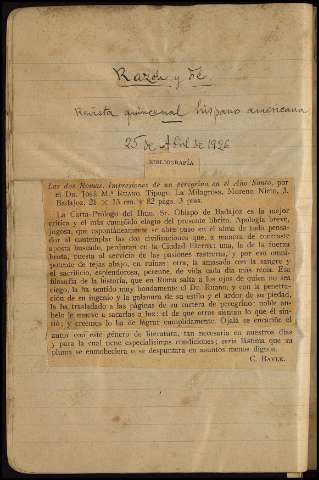 Razón y Fe
Revista quincenal hispano americana
25 de Abril de 1926
BIBLIOGRAFÍA
Las dos Romas. Impresiones de un peregrino en el Año Santo, por
el Dr. José M.ª Tipogr. La Milagrosa. Moreno Nieto, 3.
Badajoz. 21 × 15 cm. y 82 págs. 3 ptas.
La Carta-Prólogo del Ilmo. Sr. Obispo de Badajoz es la mejor
crítica y el más cumplido elogio del presente librito. Apología breve,
jugosa, que espontáneamente se abre paso en el alma de todo pensa-
dor al contemplar las dos civilizaciones que, a manera de contraste
nunca buscado, perduran en la Ciudad Eterna: una, la de la fuerza
bruta, puesta al servicio de las pasiones nocturnas, y por eso omni-
potente de tejas abajo, en ruinas; otra, la amasada con la sangre y
el sacrificio, esplendorosa, perenne, de vida cada día más recia. Esa
filosofía de la historia, que en Roma salta a los ojos de quien no sea
ciego, la ha sentido muy hondamente el Dr. y con la penetra-
ción de su ingenio y la galanura de su estilo y el ardor de su piedad,
la ha trasladado a las páginas de su cartera de peregrino: noble an-
helo le mueve a sacarlas a luz: el de que otros sientan lo que él sin-
tió; y creemos lo ha de lograr cumplidamente. Ojalá se encariñe el
autor con este género de literatura, tan necesaria en nuestros días
y para la cual tiene especialísimas condiciones; sería lástima que su
pluma se enmoheciera o se despuntara en asuntos menos dignos.
C. Bayle.